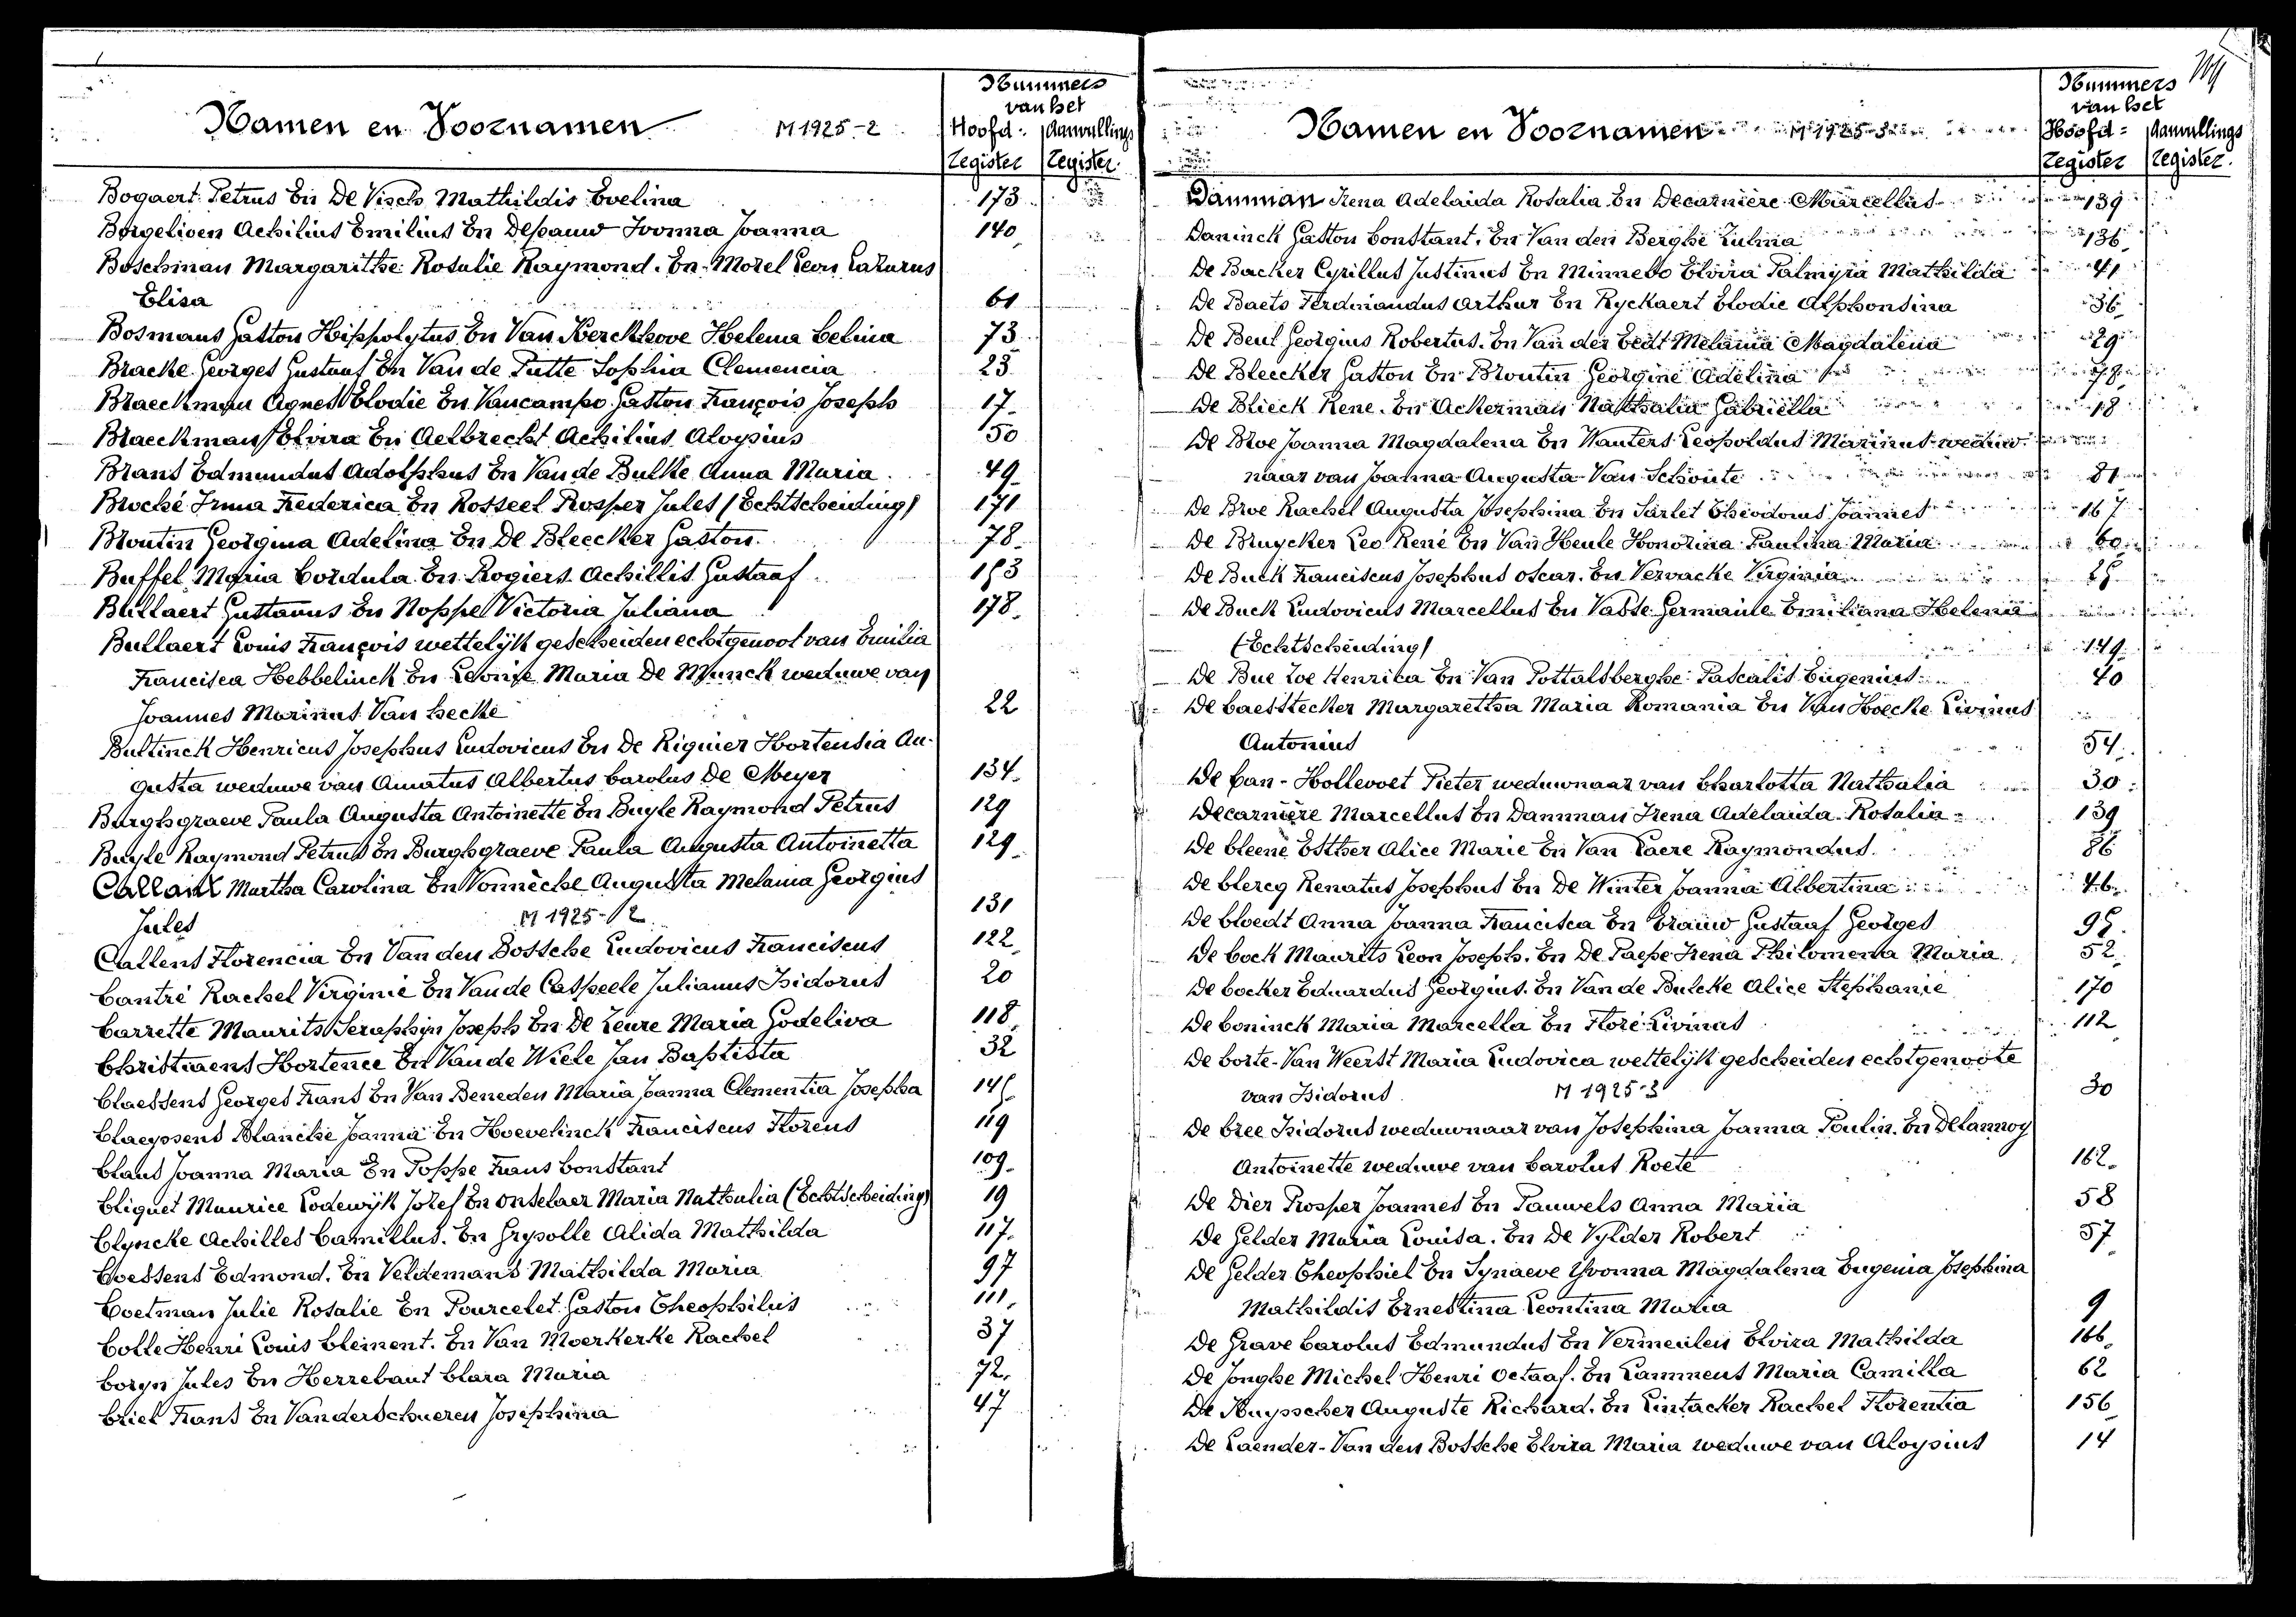 Namen en Voornamen M 1925-2
Nummers
van het
Hoofd- Aanvullings
register register
Bogaert Petrus En De Visch Mathildis Evelina 173
Borgelioen Achilius Emilius En Depauw Ivonna Joanna 140
Boschman Margarithe Rosalie Raymond. En Morel Leon Lazarus
Elisa 61
Bosmans Gaston Hippolytus En Van Kerckhove Helena Celina 73
Bracke Georges Gustaaf En Van de Putte Sophia Clemencia 23
Braeckman Agnes Elodie En Vancampo Gaston François Joseph 17
Braeckman Elvira En Aelbrecht Achilius Aloysius 50
Brans Edmundus Adolphus En Van de Bulke Anna Maria 49
Broché Irma Frederica En Rosseel Prosper Jules (Echtscheiding) 171
Broutin Georgina Adelina En De Bleecker Gaston 78
Buffel Maria Cordula En Rogiers Achillis Gustaaf
Bullaert Gustavus En Noppe Victoria Juliana 178
Bullaert Louis François wettelijk gescheiden echtgenoot van Emilia
Francisca Hebbelinck En Leonie Maria De Munck weduwe van
Joannes Marinus Van hecke 22
Bultinck Henricus Josephus Ludovicus En De Riquier Hortensia Au-
gusta weduwe van Amatus Albertus Carolus De Meyer 134
Burghgraeve Paula Augusta Antoinette En Buyle Raymond Petrus 129
Buyle Raymond Petrus En Burghgraeve Paula Augusta Antoinetta 129
Callant Martha Carolina En Vonnèche Augusta Melania Georgius
Jules M 1925-2 131
Callens Florencia En Van den Bossche Ludovicus Franciscus 122
Cantré Rachel Virginie En Van de Casseele Julianus Isidorus 20
Carrette Maurits Seraphijn Joseph En De Leure Maria Godeliva 118
Christiaens Hortence En Van de Wiele Jan Baptista 32
Claessens Georges Frans En Van Beneden Maria Joanna Clementia Josepha
Claeyssens Blanche Joanna En Hoevelinck Franciscus Florens 119
Claus Joanna Maria En Poppe Frans Constant 109
Cliquet Maurice Lodewijk Jozef En Onselaer Maria Nathalia (Echtscheiding) 19
Clyncke Achilles Camillus. En Grypolle Alida Mathilda 117
Coessens Edmond. En Veldemans Mathilda Maria 97
Coetman Julie Rosalie En Pourcelet Gaston Theophilus 111
Colle Henri Louis Clement. En Van Moerkerke Rachel 37
Coryn Jules En Herrebaut Clara Maria 72
Criel Frans En Vanderschueren Josephina 47
Namen en Voornamen M 1925-3
Nummers
van het
Hoofd- Aanvullings
register register
Damman Irena Adelaida Rosalia En Decarnière Marcellus 139
Daninck Gaston Constant. En Van den Berghe Zulma 136
De Backer Cyrillus Justinus En Minnebo Elvira Palmyra Mathilda 41
De Baets Ferdinandus Arthur En Ryckaert Elodie Alphonsina 36
De Beul Georgius Robertus. En Van der Eedt Melania Magdalena 29
De Bleecker Gaston En Broutin Georgine Adelina 78
De Blieck Rene. En Ackerman Nathalia Gabriella 18
De Broe Joanna Magdalena En Wauters Leopoldus Marinus weduw-
naar van Joanna Augusta Van Schoute 81
De Broe Rachel Augusta Josephina En Sarlet Theodorus Joannes 167
De Bruycker Leo René En Van Heule Honorina Paulina Maria 60
De Buck Franciscus Josephus Oscar. En Vervacke Virginia
De Buck Ludovicus Marcellus En Vaste Germaine Emiliana Helena
(Echtscheiding) 149
De Bue Zoe Henrica En Van Pottalsberghe Pascalis Eugenius 40
De Caesstecker Margaretha Maria Romania En Van Hoecke Livinus
Antonius 54
De Can-Hollevoet Pieter weduwnaar van Charlotta Nathalia 30
Decarnière Marcellus En Damman Irena Adelaida Rosalia 139
De Cleene Esther Alice Marie En Van Laere Raymondus 86
De Clercq Renatus Josephus En De Winter Joanna Albertina 46
De Cloedt Anna Joanna Francisca En Crauw Gustaaf Georges
De Cock Maurits Leon Joseph. En De Paepe Irena Philomena Maria 52
De Cocker Eduardus Georgius. En Van de Bulcke Alice Stephanie 170
De Coninck Maria Marcella En Floré Livinus 112
De Corte-Van Weerst Maria Ludovica wettelijk gescheiden echtgenoote
van Isidorus M 1925-3 30
De Cree Isidorus weduwnaar van Josephina Joanna Poulin. En Delannoy
Antoinette weduwe van Carolus Roete 162
De Dier Prosper Joannes En Pauwels Anna Maria 58
De Gelder Maria Louisa. En De Vylder Robert 57
De Gelder Theophiel En Synaeve Yvonna Magdalena Eugenia Josephina
Mathildis Ernestina Leontina Maria 9
De Grave Carolus Edmundus En Vermeulen Elvira Mathilda 166
De Jonghe Michel Henri Octaaf. En Lammens Maria Camilla 62
De Kuysscher Auguste Richard. En Lintacker Rachel Florentia 156
De Laender-Van den Bossche Elvira Maria weduwe van Aloysius 14